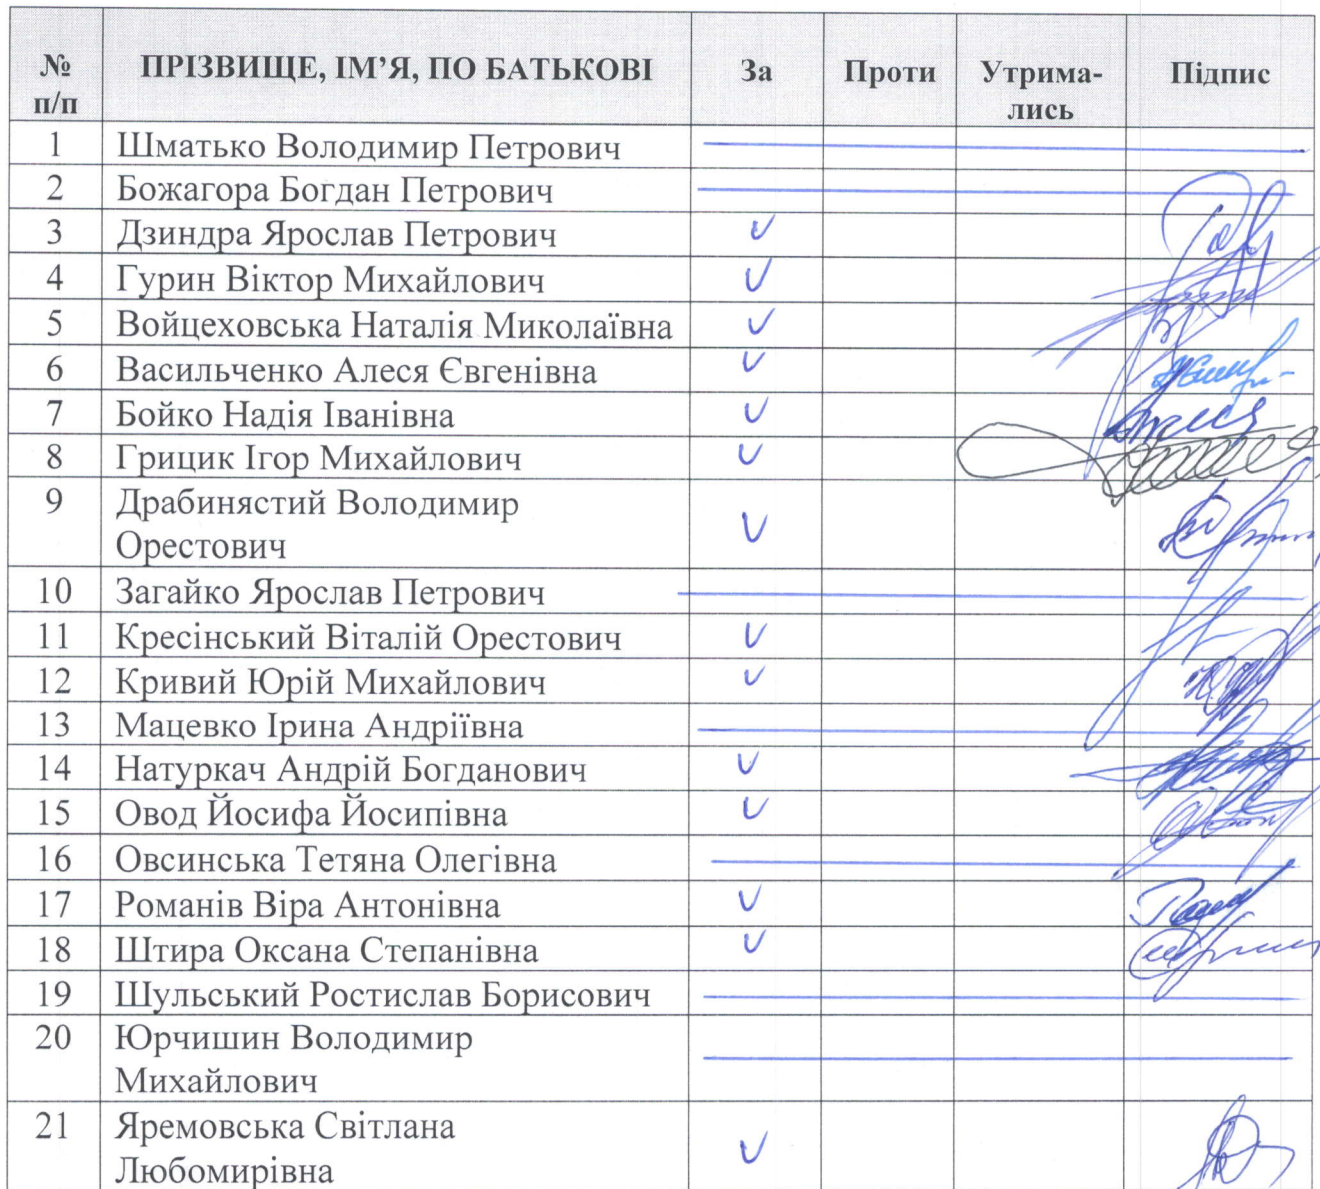 № п/п ПРІЗВИЩЕ, ІМ’Я, ПО БАТЬКОВІ За Проти Утрима-лись Підпис
1 Шматько Володимир Петрович
2 Божагора Богдан Петрович
3 Дзиндра Ярослав Петрович V
4 Гурин Віктор Михайлович V
5 Войцеховська Наталія Миколаївна V
6 Васильченко Алеся Євгенівна V
7 Бойко Надія Іванівна V
8 Грицик Ігор Михайлович V
9 Драбинястий Володимир
Орестович V
10 Загайко Ярослав Петрович
11 Кресінський Віталій Орестович V
12 Кривий Юрій Михайлович V
13 Мацевко Ірина Андріївна
14 Натуркач Андрій Богданович V
15 Овод Йосифа Йосипівна V
16 Овсинська Тетяна Олегівна
17 Романів Віра Антонівна V
18 Штира Оксана Степанівна V
19 Шульський Ростислав Борисович
20 Юрчишин Володимир
Михайлович
21 Яремовська Світлана
Любомирівна V